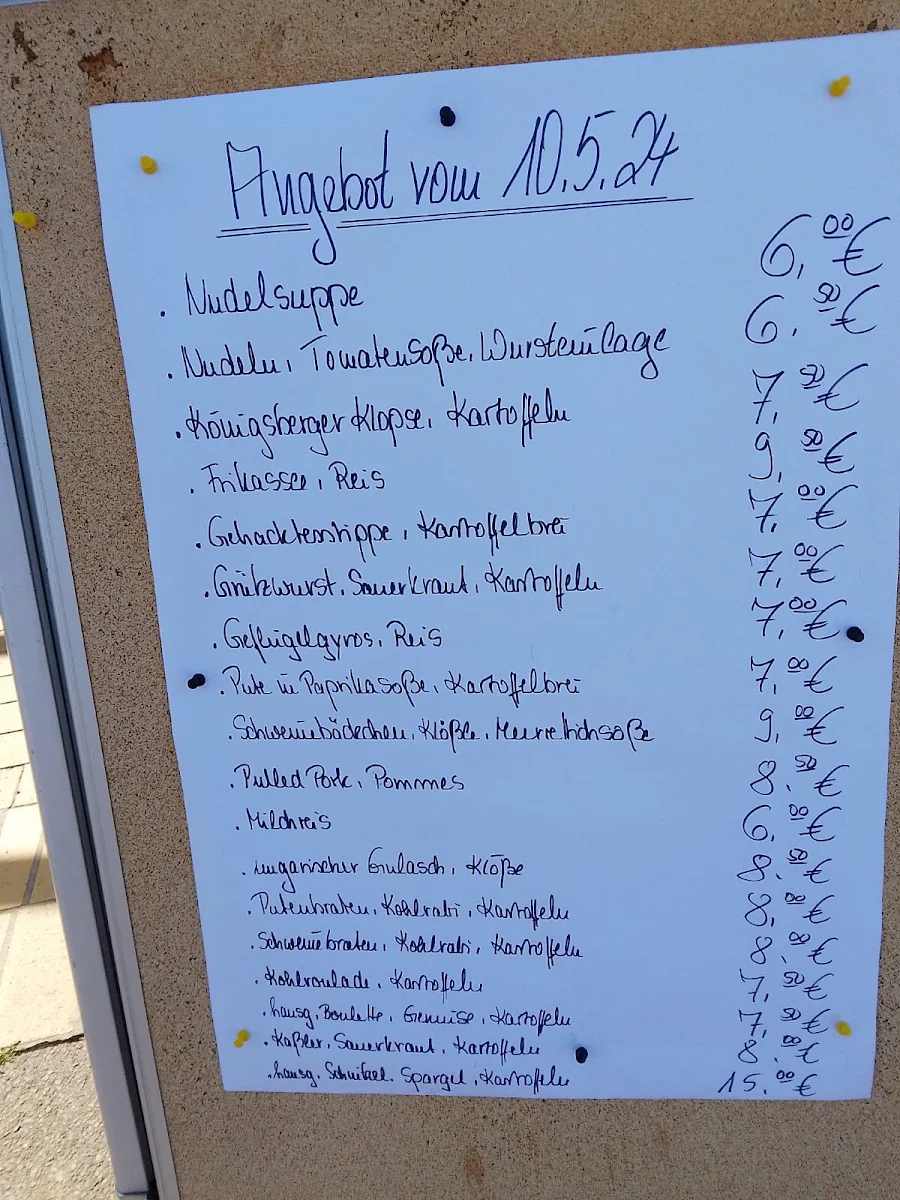 Angebot vom 10.5.24
. Nudelsuppe 6,00 €
. Nudeln, Tomatensoße, Wursteinlage 6,50 €
. Königsberger Klopse, Kartoffeln 7,50 €
. Frikassee, Reis 9,50 €
. Gehacktesstippe, Kartoffelbrei 7,00 €
. Grützwurst, Sauerkraut, Kartoffeln 7,00 €
. Geflügelgyros, Reis 7,00 €
. Pute in Paprikasoße, Kartoffelbrei 7,00 €
. Schweinebäckchen, Klöße, Meerrettichsoße 9,00 €
. Pulled Pork, Pommes 8,50 €
. Milchreis 6,00 €
. ungarischer Gulasch, Klöße 8,50 €
. Putenbraten, Kohlrabi, Kartoffeln 8,00 €
. Schweinebraten, Kohlrabi, Kartoffeln 8,00 €
. Kohlroulade, Kartoffeln 7,50 €
. hausg. Boulette, Gemüse, Kartoffeln 7,50 €
. Kaßler, Sauerkraut, Kartoffeln 8,00 €
. hausg. Schnitzel, Spargel, Kartoffeln 15,00 €